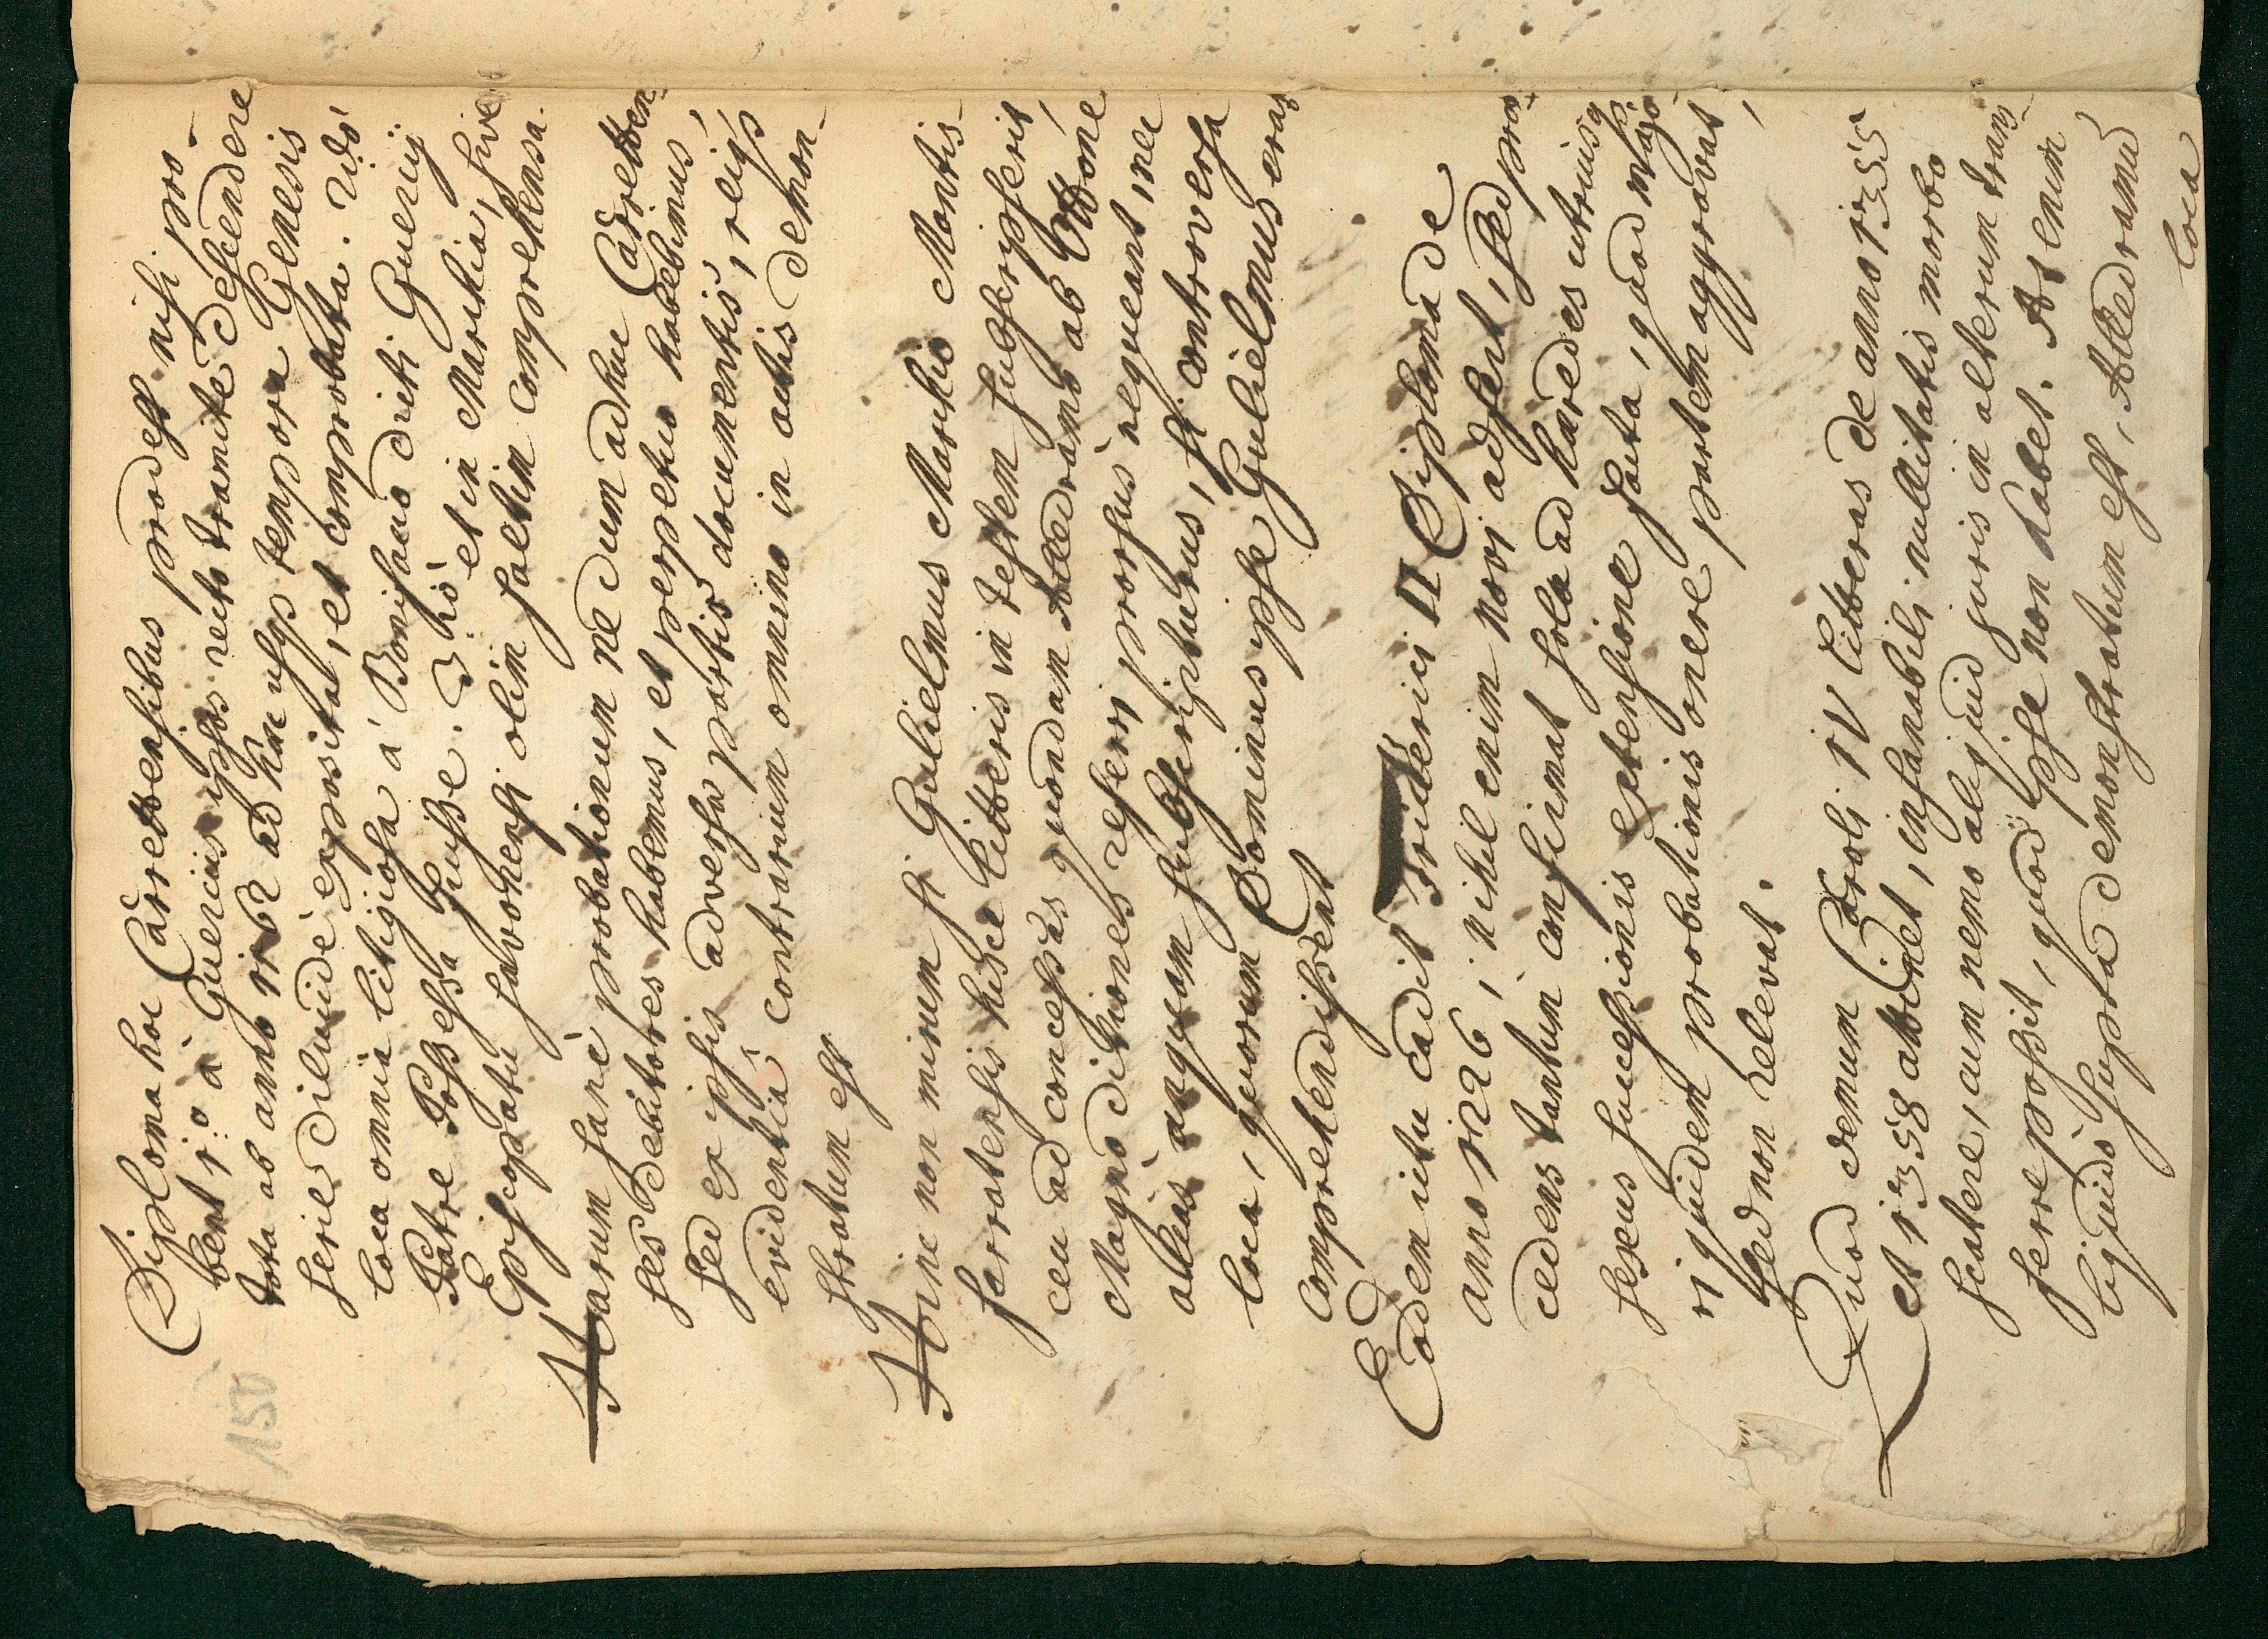 150
Diploma hoc Carrettensibus prodest nisi pro-
bent 1.º à Guercius ipsos recto tramite descendere
tota ab anno 1162 ad hæc usq tempora Genesis
serie dilucidè exposita, et comprobata. 2.dò
loca omnia litigiosa à Bonifacio dicti Guercij
Patre Possessa fuisse. 3.tiò et in Marchia, sive
Episcopatu Savonensi olim saltim comprehensa.
Harum sanè probationum ne dum adhuc Carretten-
ses Debitores habemus, et perpetuo habebimus,
sed ex ipsis adversæ partis documentis, reiq's
evidentiâ contrarium omnino in actis demon-
stratum est
Hinc non mirum si Gulielmus Marchio Montis-
ferratensis hisce litteris in testem subscripserit,
ceu ad concessas quondam Alledramo ab Ottone
Magno ditiones referri prorsus nequeant, nec
alias unquam subscripturus, si controversa
loca, quorum Dominus ipse Gulielmus erat
comprehendissent
Eodem ictu cadit Friderici II Diploma de
anno 1226, nihil enim novi adfert, sed præ-
cedens tantum confirmat sola ad hæredes utriusq
sexus successionis extensione facta, quod majo-
ri quidem probationis onere partem aggravat,
sed non relevat.
Quod demum Caroli IV litteras de anno 1355
et 1358 attinet, insanabili nullitatis morbo
scatere, cum nemo aliquid juris in alterum trans-
ferre possit, quod ipse non habet. At enim
liquido supra demonstratum est, Alledramu
loca